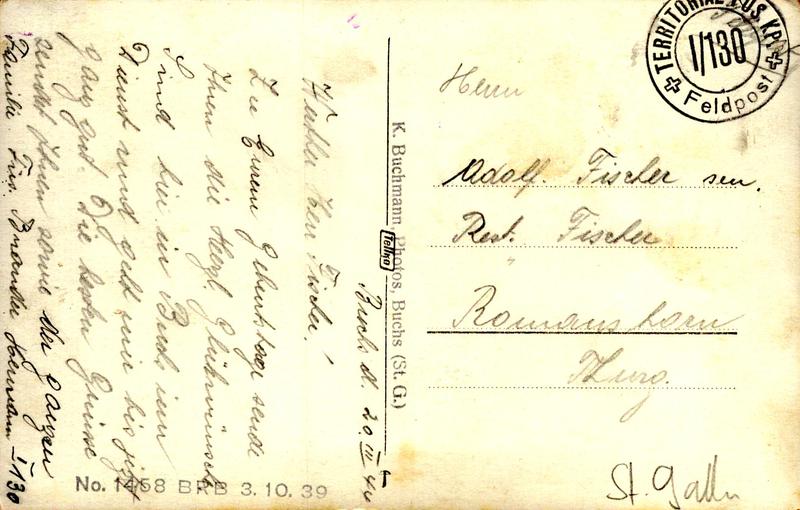 Buchs d. 20. III 44
Werter Herr Fischer!
Zu Eurem Geburtstage sende
Ihnen die Herzl. Glückwünsche
Sind hier in Buchs im
Dienst und geht mir bis jetzt
ganz gut. Die besten Grüsse
sendet Ihnen sowie der ganzen
Familie Füs. Hermann I/130
K. Buchmann, Photos, Buchs (St. G.)
tellko
No. 1468 BRB 3. 10. 39
TERRITORIAL FÜS. KP.
I/130
Feldpost
Herrn
Adolf. Fischer sen.
Rest. Fischer
Romanshorn
Thurg.
St. Gallen